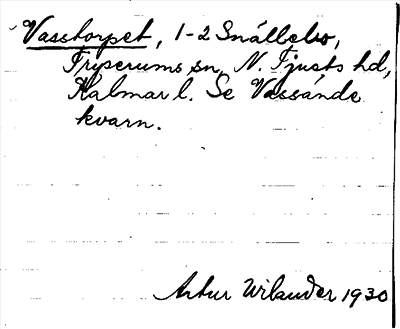 Vasstorpet, 1-2 Snällebo,
Tryserums sn, N. Tjusts hd,
Kalmar l. Se Vassände
kvarn.
Artur Wilander 1930